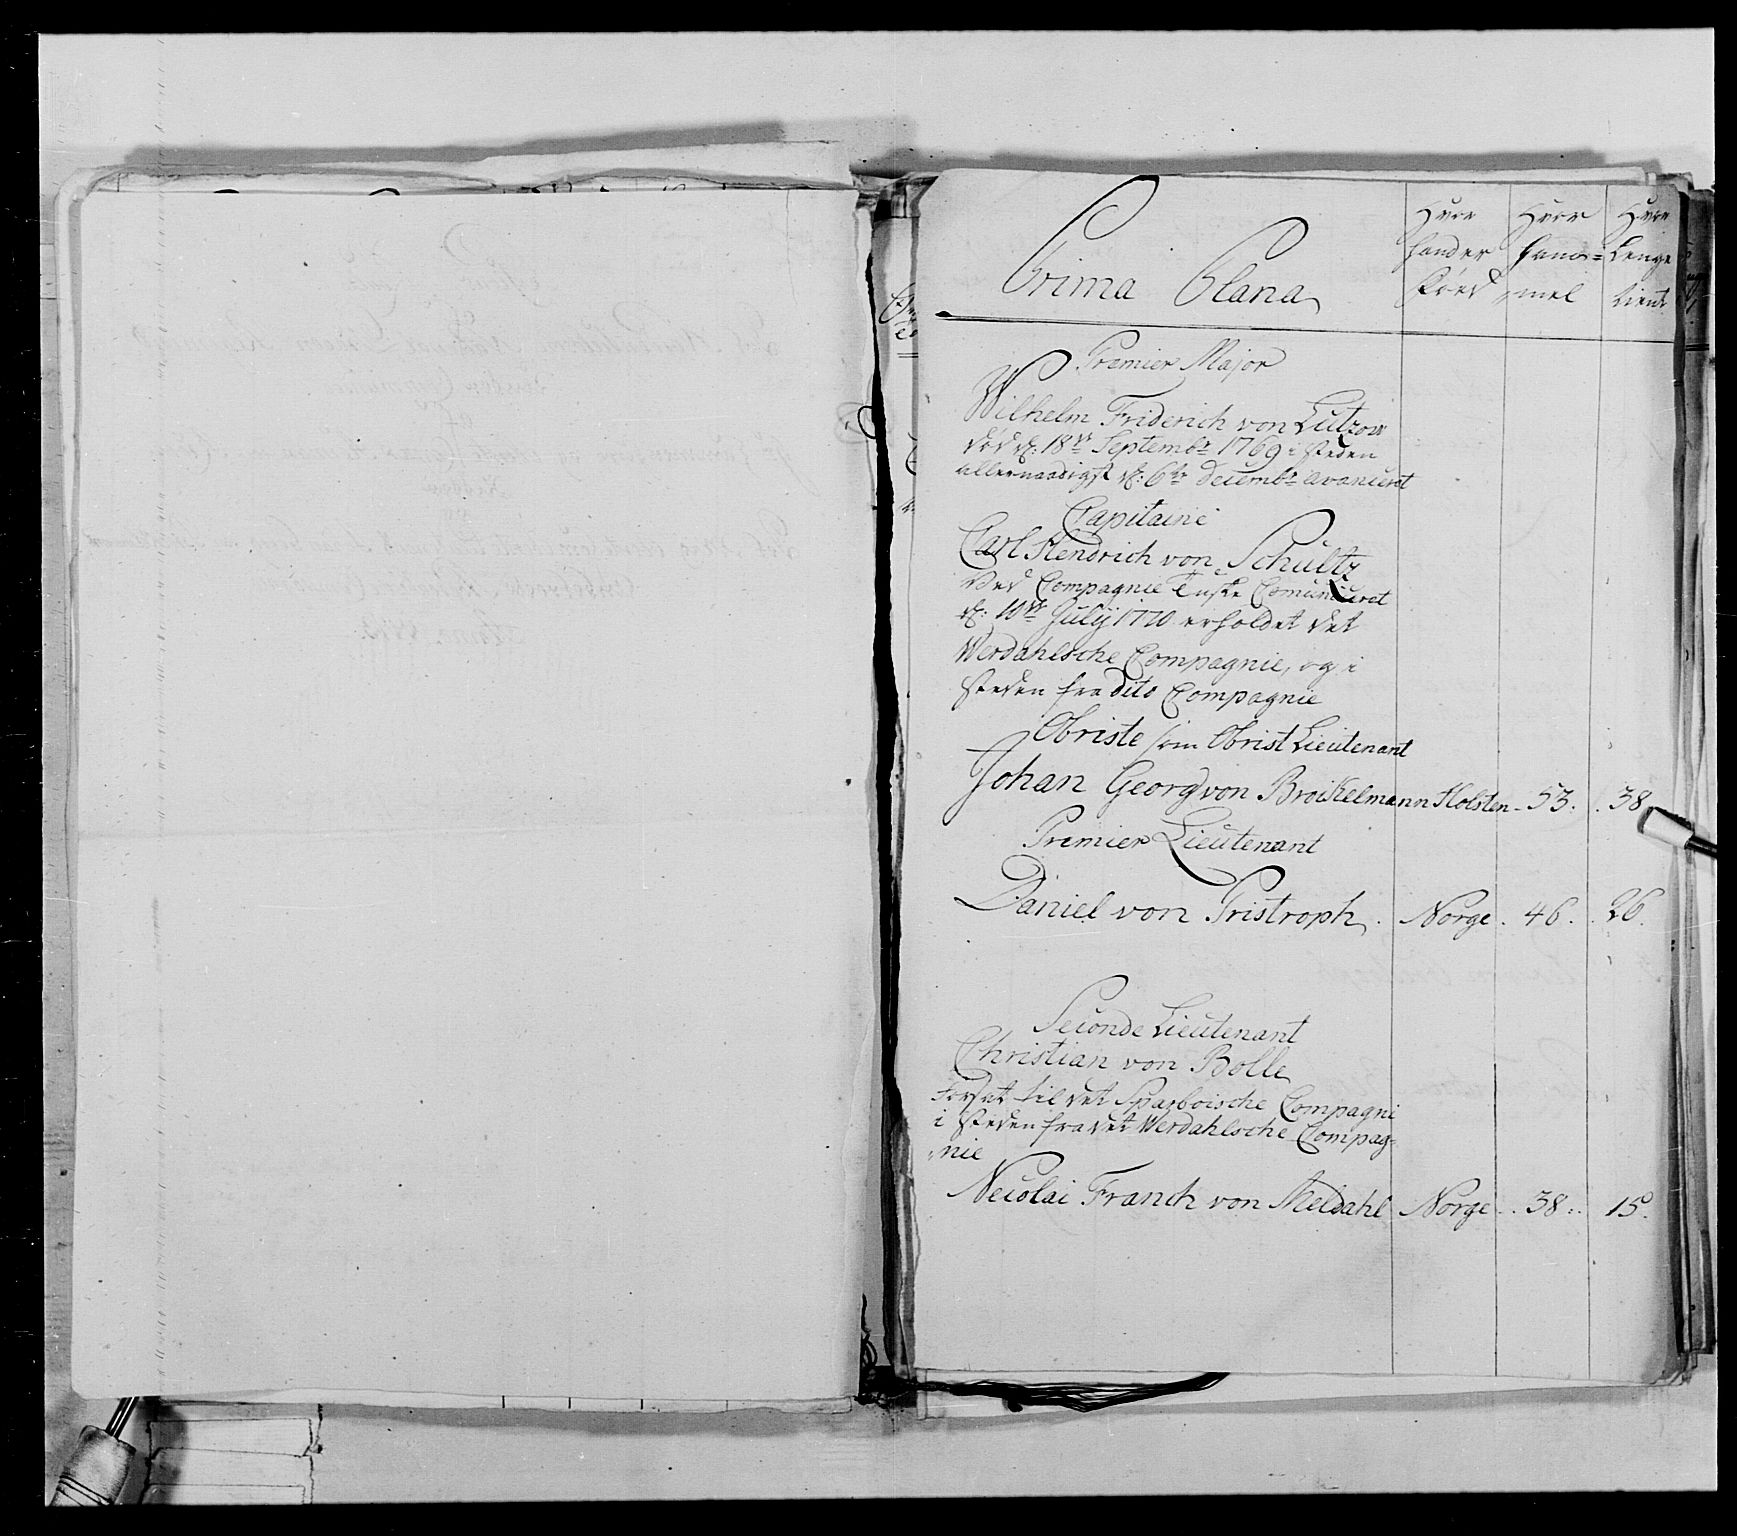 Prima Plana
Hvor
født
Hvor
gam=
mel
Hvor
Lenge
tient
Premier Major
Wilhelm Friderich von Lutzow
død d: 18de Septembr 1769 i steden
allernaadigst d: 6te Decembr avanceret
Capitaine
Carl Hendrich von Schultz
Ved Compagnie
d: 10de Julij 1770 erholdet det
Werdahlsche Compagnie, og i
steden fra dito Compagnie
Obriste som Obrist Lieutenant
Johan Georg von Brockelmann Holsten - 53. . 38
Premier Lieutenant
Daniel von Tristroph . Norge . 46 . . 26.
Seconde Lieutenant
Christian von Bolle
Forsat til det Sparboische Compagni
i steden fra det Werdahlsche Compag=
nie
Necolai Franck von Meldahl Norge . . 38 . . 15.